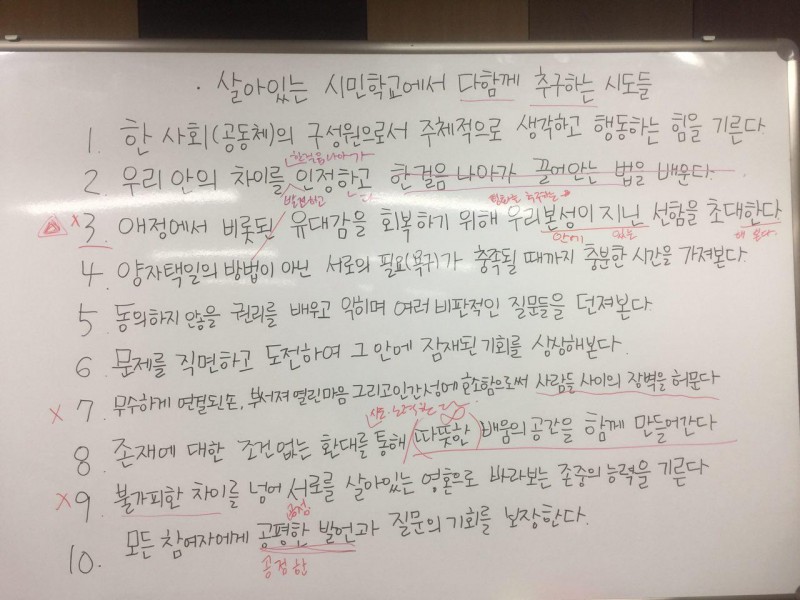 · 살아있는 시민학교에서 다함께 추구하는 시도들
1. 한 사회(공동체)의 구성원으로서 주체적으로 생각하고 행동하는 힘을 기른다.
한걸음 나아가
2. 우리 안의 차이를 인정하고 한걸음 나아가 끌어안는 법을 배운다.
발견하고
x 3. 애정에서 비롯된 유대감을 회복하기 위해 우리본성이 지닌 선함을 초대한다
안에 있는 해 본다.
4 양자택일의 방법이 아닌 서로의 필요(욕구)가 충족될 때까지 충분한 시간을 가져본다.
5 동의하지 않을 권리를 배우고 익히며 여러 비판적인 질문들을 던져본다
6 문제를 직면하고 도전하여 그 안에 잠재된 기회를 상상해본다.
x 7. 무수하게 연결된손, 부서져 열린마음 그리고인간성에 호소함으로써 사람들 사이의 장벽을 허문다
8. 존재에 대한 조건없는 환대를 통해 (따뜻한) 배움의 공간을 함께 만들어간다
x 9. 불가피한 차이를 넘어 서로를 살아있는 영혼으로 바라보는 존중의 능력을 기른다
10. 모든 참여자에게 공평한 발언과 질문의 기회를 보장한다.
공정한